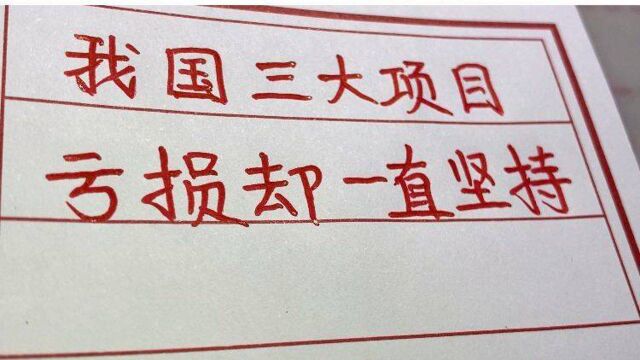 我国三大项目
亏损却一直坚持